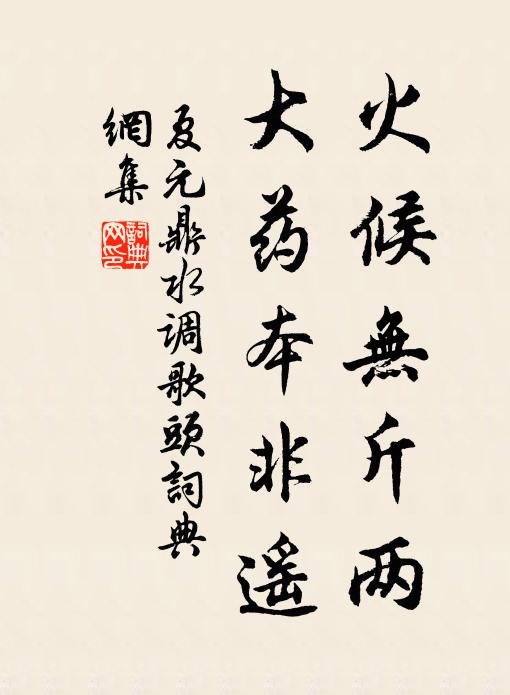 火候無斤两
大药本非遥
夏元鼎水调歌頭詞典
網集
詞典
网印